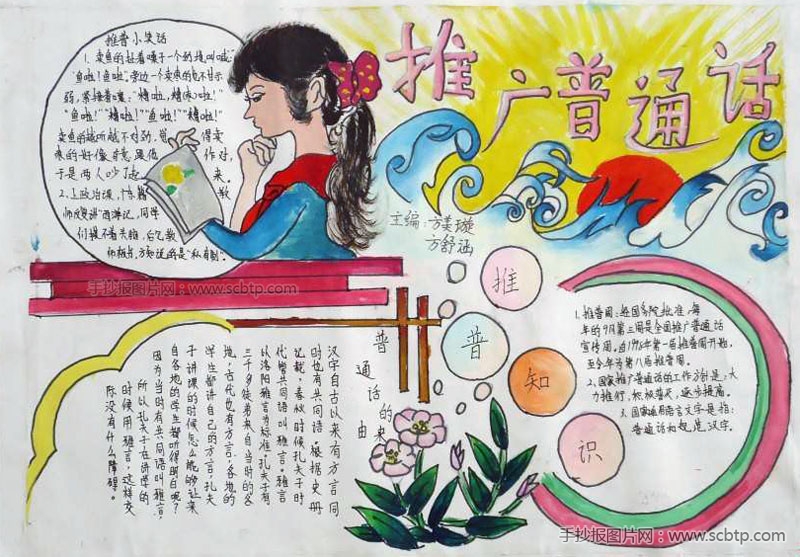 推广普通话
主编：方美璇
方舒涵
推普小笑话
1. 卖鱼的扯着嗓子一个劲地叫喊：
“鱼啦！鱼啦”，旁边一个卖枣的也不甘示
弱，紧接着嚷：“糟啦，糟啦！”
“鱼啦！”“糟啦！”“鱼啦！”“糟啦！”
卖鱼的越听越不对劲，觉得卖
枣的好像故意跟他作对，
于是两人吵了起来。
2. 上政治课，教
师反复讲“西游记”，同学
们摸不着头脑，后
师板书，方知说的是“私有制”。
手抄报图片网：www.scbtp.com
普通话的来由
汉字自古以来有方言同
时也有共同语。根据史册
记载，春秋时候孔夫子时
代管共同语叫雅言。雅言
以洛阳雅言为标准。孔夫子有
三千多徒弟来自当时的各
地，古代也有方言，各地的
学生都讲自己的方言，孔夫
子讲课的时候怎么能够让来
自各地的学生都听得明白呢？
因为当时有共同语叫雅言，
所以孔夫子在讲学的
时候用雅言，这样交
际没有什么障碍。
推普知识
1. 推普周：经国务院批准，每
年的9月第三周是全国推广普通话
宣传周。由1998年第一届推普周开始，
至今年为第八届推普周。
2. 国家推广普通话的工作方针是：大
力推行，积极普及，逐步提高。
3. 国家通用语言文字是指：
普通话和规范汉字。
手抄报图片网：www.scbtp.com